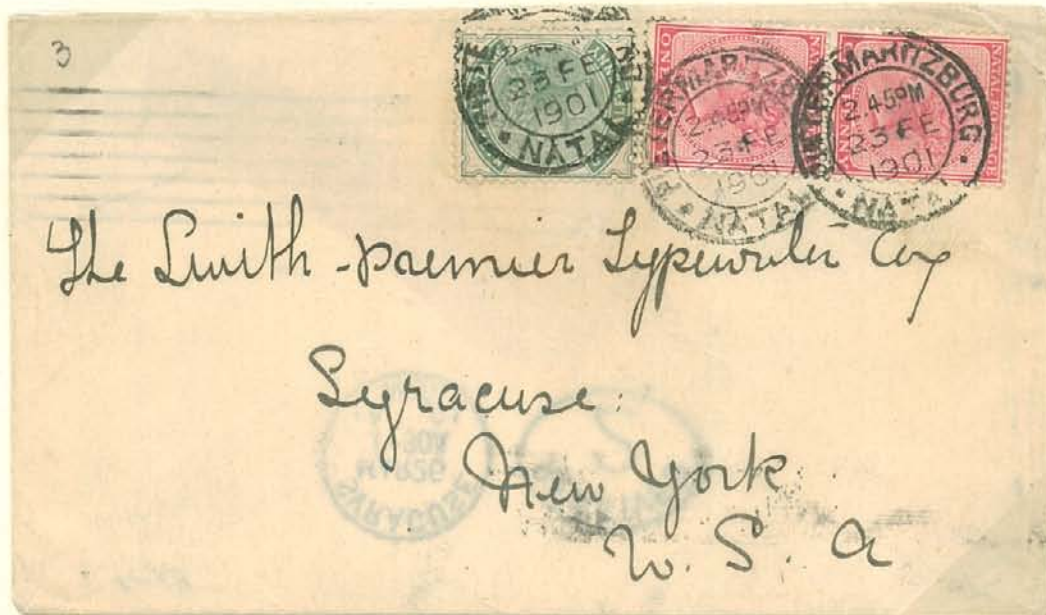 3
2.45PM
23 FE
1901
NATAL
ONE
PIETERMARITZBURG
2.45PM
23 FE
1901
NATAL
NATAL POSTAGE
PIETERMARITZBURG
2.45PM
23 FE
1901
NATAL
The Smith-Premier Typewriter Coy
Syracuse.
New York
U. S. A
SYRACUSE